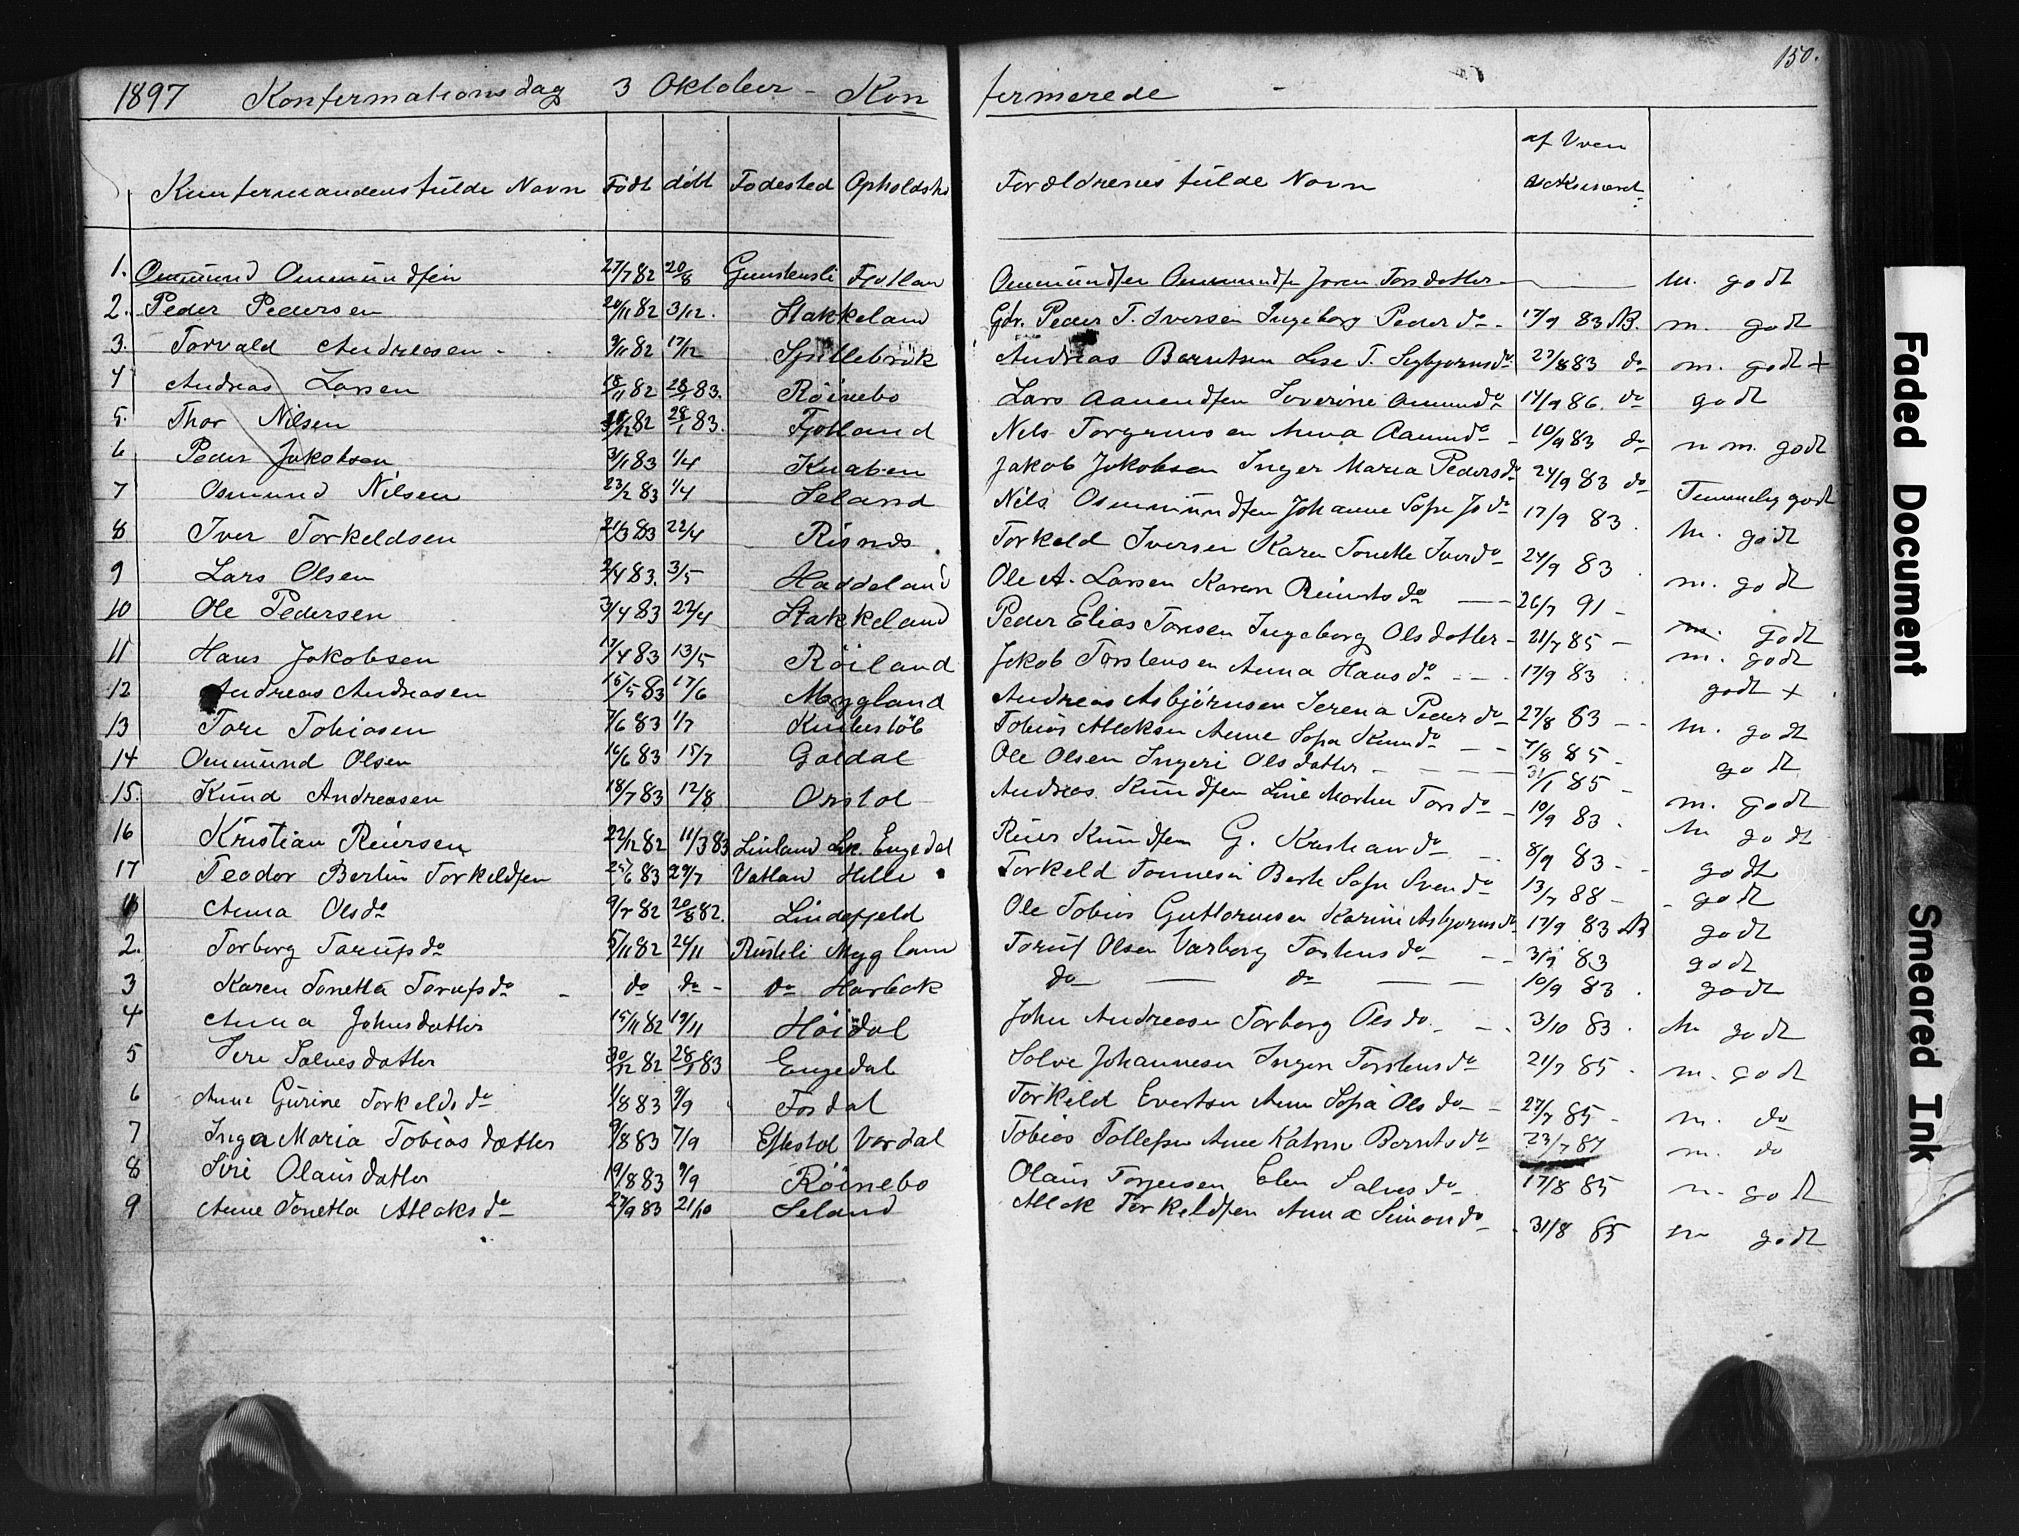 150.
1897 Konfirmationsdag 3 Oktober - Konfirmerede
Konfirmandens fulde Navn Født døbt Fødested Opholdsst Forældrenes fulde Navn af Hvem vakcineret
1. Ommund Ommundsen 27/7 82 20/8 Fjotland Ommundsen Ommundsen Joren Torsdatter - m. godt
2. Peder Pedersen 20/11 82 3/12. Stakkeland Gdr. Peder T. Iversen Ingeborg Pedersdo - 17/9 83 m. godt
3. Torvald Andreasen - 9/11 82 17/12 Spillebrok Andreas Berntsen Lise T. do 27/8 83 do m. godt +
4 Andreas Larsen 18/11 82 28/1 83. Röinebo Lars Aanendsen Severine do 17/9 86. do godt
5. Thor Nilsen 82 28/1 83. Fjotland Nils Torgrimsen Anna Aamundo - 10/9 83 do m. godt
6 Peder Jakobsen 3/1 83 1/4 Knaben Jakob Jokobsen Inger Maria Pedersdo 24/9 83 do Temmelig godt
7 Osmund Nilsen 23/2 83 1/4 Seland Nils Osmundsen Johanne Sofie Jo do 17/9 83. m. godt
8 Iver Torkeldsen 21/3 83 22/4 Risnes Torkeld Iversen Karen Tonette Iversdo 24/9 83 m. godt
9 Lars Olsen 2/4 83. 3/5 Haddeland Ole A. Larsen Karen Reiertsdo - 26/7 91 -
10 Ole Pedersen 3/4 83 22/4 Stakkeland Peder Elias Tonesen Ingeborg Olsdatter - 21/7 85 - m. godt
11 Hans Jakobsen 17/4 83 13/5 Röiland Jakob Torstensen Anna Hansdo - - . 17/9 83 m. godt
12 Andreas Andreasen 15/5 83 17/6 Myggland Andreas Asbjørnsen Serena Pedersdo - 27/8 83 - - godt +
13 Tore Tobiasen 7/6 83 1/7 Knibestöl Tobias Atlaksen Anne Sofia Knudsdo - - 7/8 85 - m. godt
14 Ommund Olsen 16/6 83 15/7 Goldal Ole Olsen Ingeri Olsdatter - 31/1 85 - godt
15. Knud Andreasen 18/7 83 12/8 Orstol Andreas Knudsen Line Marther Torsdo - 10/9 83. m. godt
16 Kristian Reiersen 22/12 82 11/3 83 Linland Engedal Reier Knudsen G. Kristiansdo - 8/9 83 - m godt
17 Teodor Bertin Torkeldsen 25/6 83 29/7 Vatland Helle Torkeld Tonnesen Berte Sofie Svendo 13/7 88 - godt
1 Anna Olsdo 9/7 82 20/8 82. Lindefjeld Ole Tobias Guttormsen Karine Asbjornsdo 17/9 83 - godt
2. Torborg Torupsdo 5/11 82 24/11 Rusteli Myggland Toruf Olsen Varborg Torstensdo - - 3/9 83 godt
3 Karen Tonetta Torupsdo - do do - do Harbak do - do - - 10/9 83. godt
4 Anna Johnsdatter 15/11 82 19/11 Höidal John Andreasen Torborg Olsdo. - - . 3/10 83. godt
5 Siri Salvesdatter 30/12 82 28/1 83 Engedal Solve Johannesen Inger Torstensdo 21/7 85. m. godt
6 Anne Gurine Torkeldsdo 1/8 83 9/9 Fosdal Torkeld Evertsen Anne Sofia Olsdo - - 27/7 85 - m. godt
7 Inga Maria Tobiasdatter 9/8 83 7/9 Eftestol Vordal Tobias Tollefsen Ane Katrin Berntsdo 23/7 87 m. do
8 Siri Olausdatter 19/8 83 9/9 Röinebo Olaus Torjusen Elen Salvesdo 17/8 85 m. do
9 Anne Tonetta Atlaksdo 27/9 83 21/10 Seland Atlak Torkeldsen Anna Simondo - 31/8 85 m. godt
m godt
Faded Document
Smeared Ink